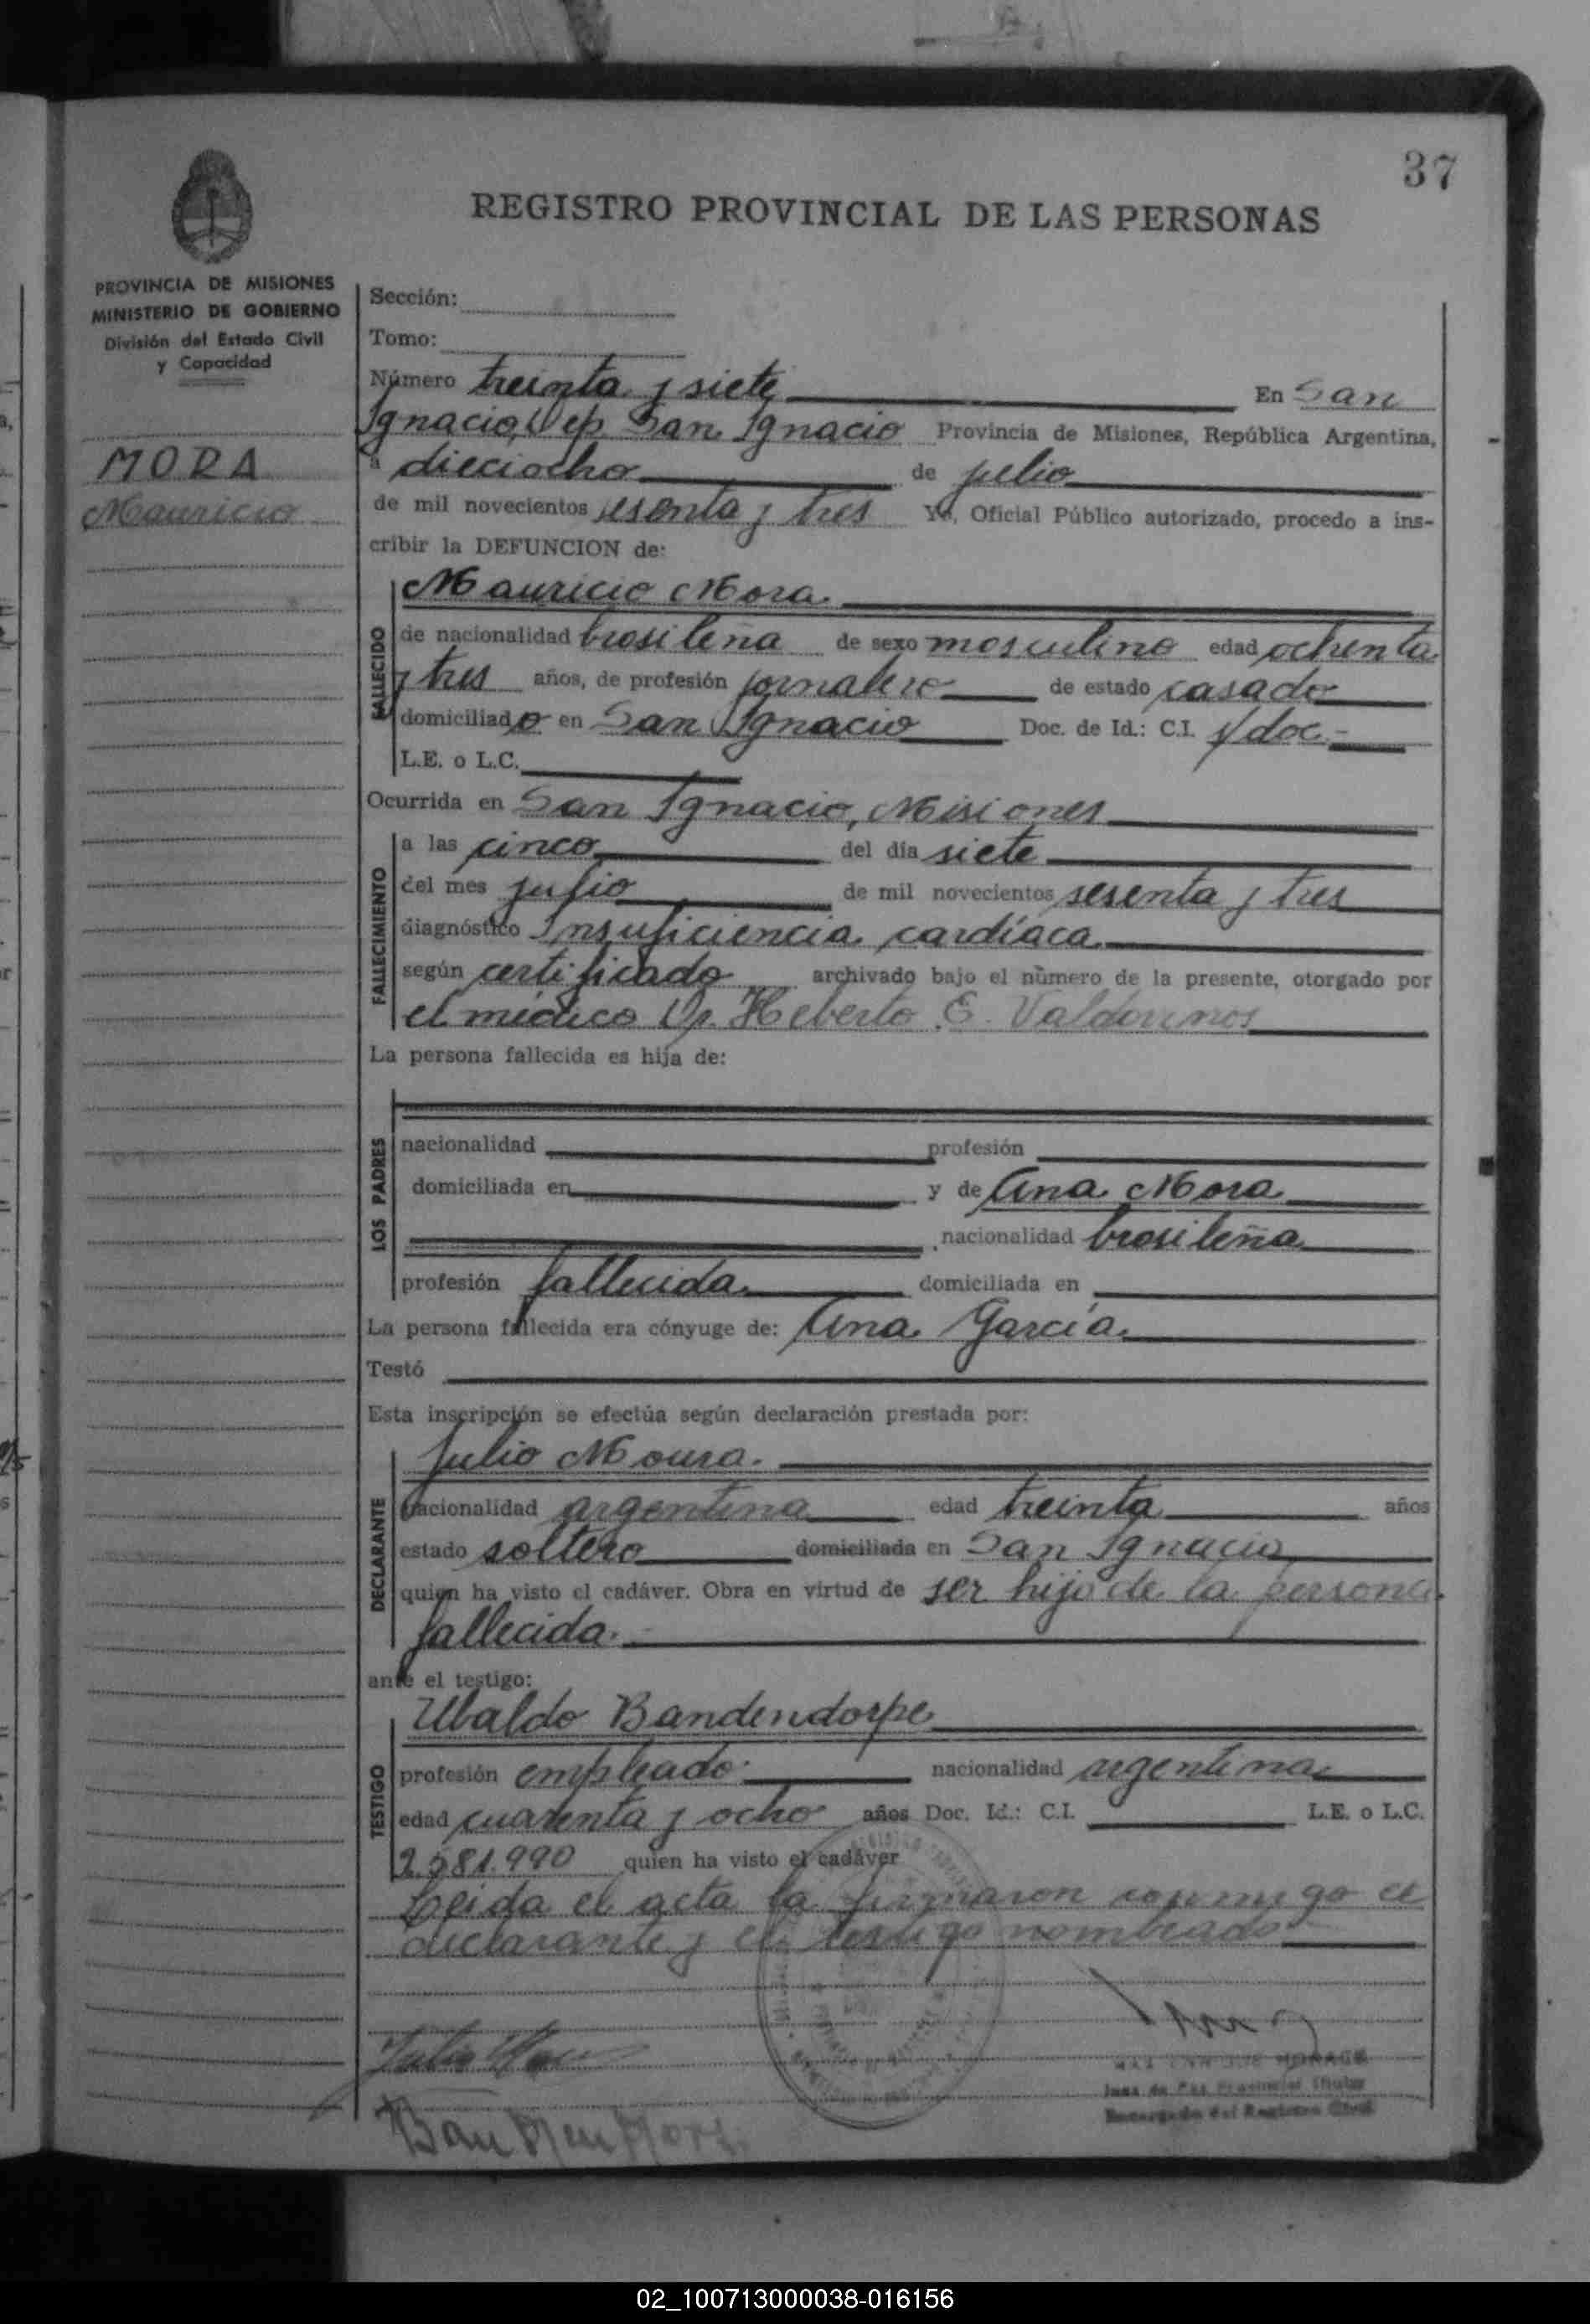 37
REGISTRO PROVINCIAL DE LAS PERSONAS
PROVINCIA DE MISIONES
MINISTERIO DE GOBIERNO
División del Estado Civil
y Capacidad
MORA
Mauricio
Sección:
Tomo:
Número treinta y siete En San
Ignacio, Dep. San Ignacio Provincia de Misiones, República Argentina,
a dieciocho de julio
de mil novecientos sesenta y tres Yo, Oficial Público autorizado, procedo a ins-
cribir la DEFUNCION de:
FALLECIDO
Mauricio Mora.
de nacionalidad brasileña de sexo masculino edad ochenta
y tres años, de profesión jornalero de estado casado
domiciliado en San Ignacio Doc. de Id.: C.I. s/doc.-
L.E. o L.C.
Ocurrida en San Ignacio, Misiones
FALLECIMIENTO
a las cinco del día siete
del mes julio de mil novecientos sesenta y tres
diagnóstico Insuficiencia cardíaca.
según certificado archivado bajo el número de la presente, otorgado por
el médico Dr. Heberto E. Valdovinos
La persona fallecida es hija de:
LOS PADRES
nacionalidad profesión
domiciliada en y de Ana Mora
nacionalidad brasileña
profesión fallecida. domiciliada en
La persona fallecida era cónyuge de: Ana García.
Testó
Esta inscripción se efectúa según declaración prestada por:
DECLARANTE
Julio Moura.
nacionalidad argentina edad treinta años
estado soltero domiciliada en San Ignacio
quien ha visto el cadáver. Obra en virtud de ser hijo de la persona
fallecida.
ante el testigo:
TESTIGO
Ubaldo Bandendorpe
profesión empleado. nacionalidad argentina
edad cuarenta y ocho años Doc. Id.: C.I. L.E. o L.C.
2.581.990 quien ha visto el cadáver
Leida el acta la firmaron conmigo el
declarante y el testigo nombrado
Julio
Juez de Paz Provincial Titular
Encargado del Registro Civil
02_100713000038-016156